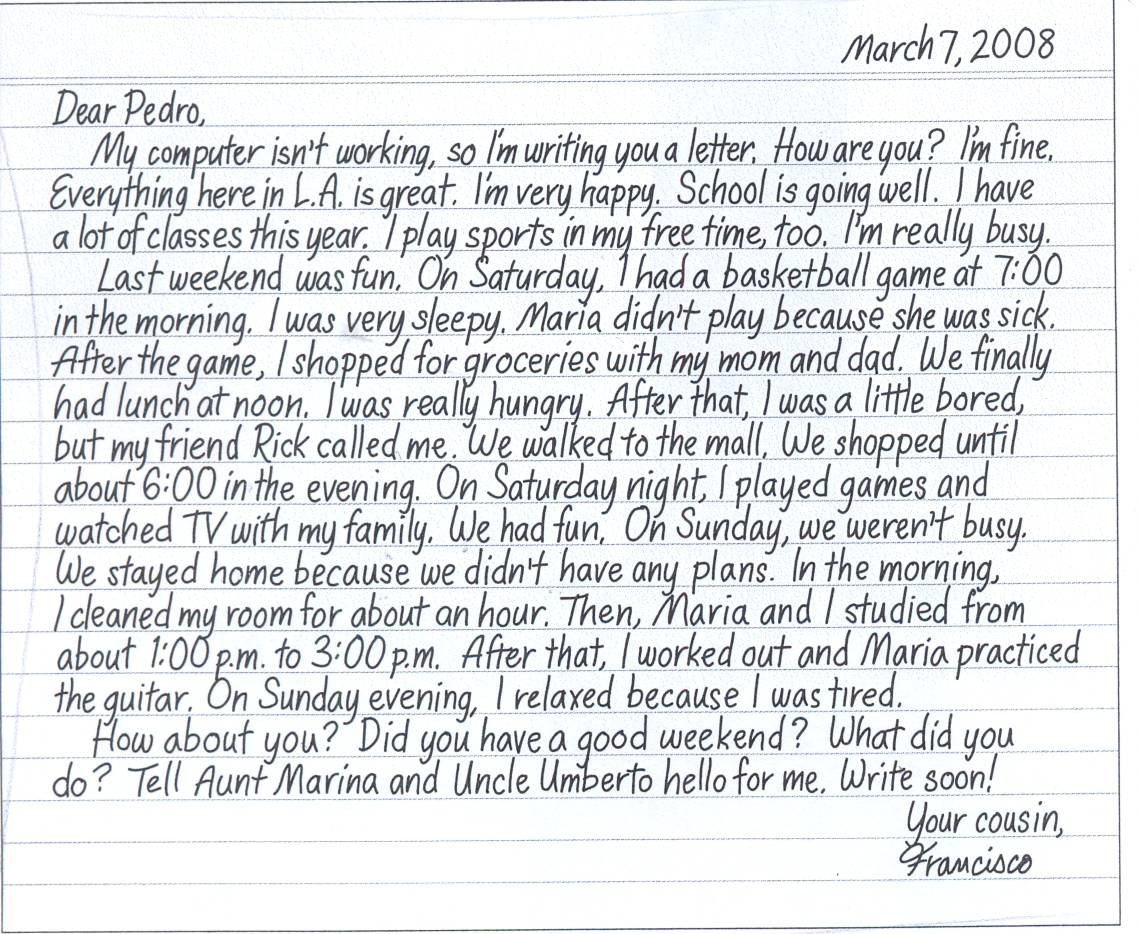 March 7, 2008
Dear Pedro,
My computer isn't working, so I'm writing you a letter. How are you? I'm fine.
Everything here in L.A. is great. I'm very happy. School is going well. I have
a lot of classes this year. I play sports in my free time, too. I'm really busy.
Last weekend was fun. On Saturday, I had a basketball game at 7:00
in the morning. I was very sleepy. Maria didn't play because she was sick.
After the game, I shopped for groceries with my mom and dad. We finally
had lunch at noon. I was really hungry. After that, I was a little bored,
but my friend Rick called me. We walked to the mall. We shopped until
about 6:00 in the evening. On Saturday night, I played games and
watched TV with my family. We had fun. On Sunday, we weren't busy.
We stayed home because we didn't have any plans. In the morning,
I cleaned my room for about an hour. Then, Maria and I studied from
about 1:00 p.m. to 3:00 p.m. After that, I worked out and Maria practiced
the guitar. On Sunday evening, I relaxed because I was tired.
How about you? Did you have a good weekend? What did you
do? Tell Aunt Marina and Uncle Umberto hello for me. Write soon!
Your cousin,
Francisco